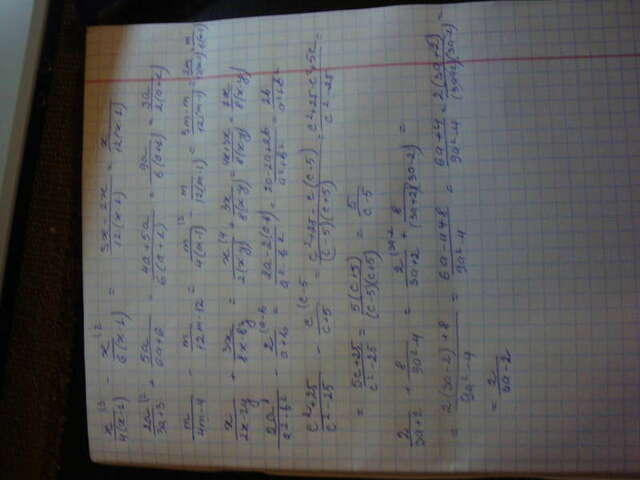 x/4(x-2) - x/6(x-2) = 3x-2x/12(x-2) = x/12(x-2)
2a/3a+3 + 5a/6a+6 = 4a+5a/6(a+1) = 9a/6(a+1) = 3a/2(a+1)
m/4m-4 - m/12m-12 = m/4(m-1) - m/12(m-1) = 3m-m/12(m-1) =
x/2x-2y + 3x/8x-8y = x/2(x-y) + 3x/8(x-y) = 4x+3x/8(x-y) =
2a/a²-b² - 2/a+b =
c²+25/c²-25 - c/c+5 = c²+25-c(c-5)/(c-5)(c+5) = c²+25-c²+5c/c²-25 =
= 5c+25/c²-25 = 5(c+5)/(c-5)(c+5) = 5/c-5
2/3a+2 + 8/9a²-4 = 2/3a+2 + 8/(3a+2)(3a-2) =
= 2(3a-2)+8/9a²-4 = 6a-4+8/9a²-4 = 6a+4/9a²-4 = 2(3a+2)/(3a+2)(3a-2) =
= 2/3a-2